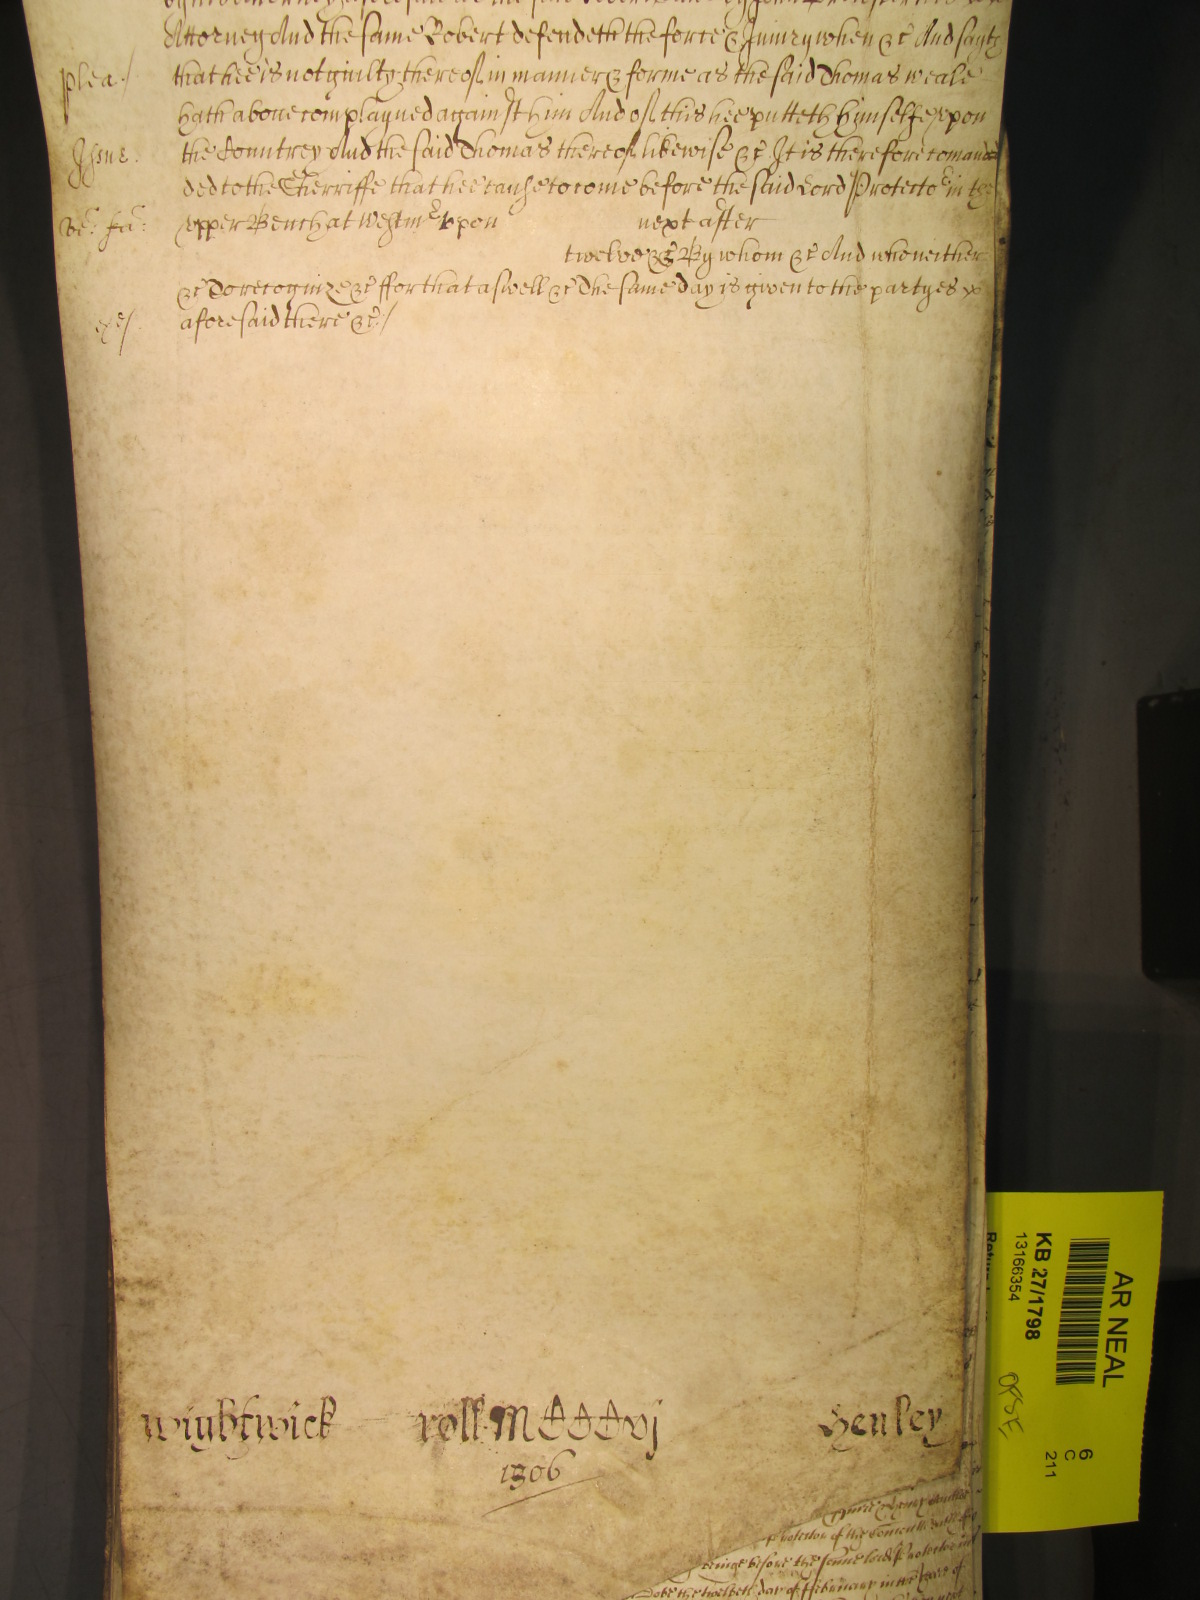 Attorney And the same Robert defendeth the force & Iniury when &c And sayth
plea / that hee is not guilty thereof in manner & forme as the said Thomas weale
hath aboue complayned against him And of this hee putteth himselfe vpon
Issue. the Countrey And the said Thomas thereof likewise &c It is therefore coman
ded to the Sherriffe that hee cause to come before the said Lord Protector in the
ve: fa: vpper Bench at Westmr vpon next after
twelve &c By whom &c And who neither
&c To recognize &c ffor that aswell &c The same day is given to the partyes
aforesaid there &c /
wightwick roll MCCCvj Henley
1306
Protector of the Comon
before the same lord Protector
the twelveth day of ffebruary in the yeare of
AR NEAL
KB 27/1798
13166354
6
C
211